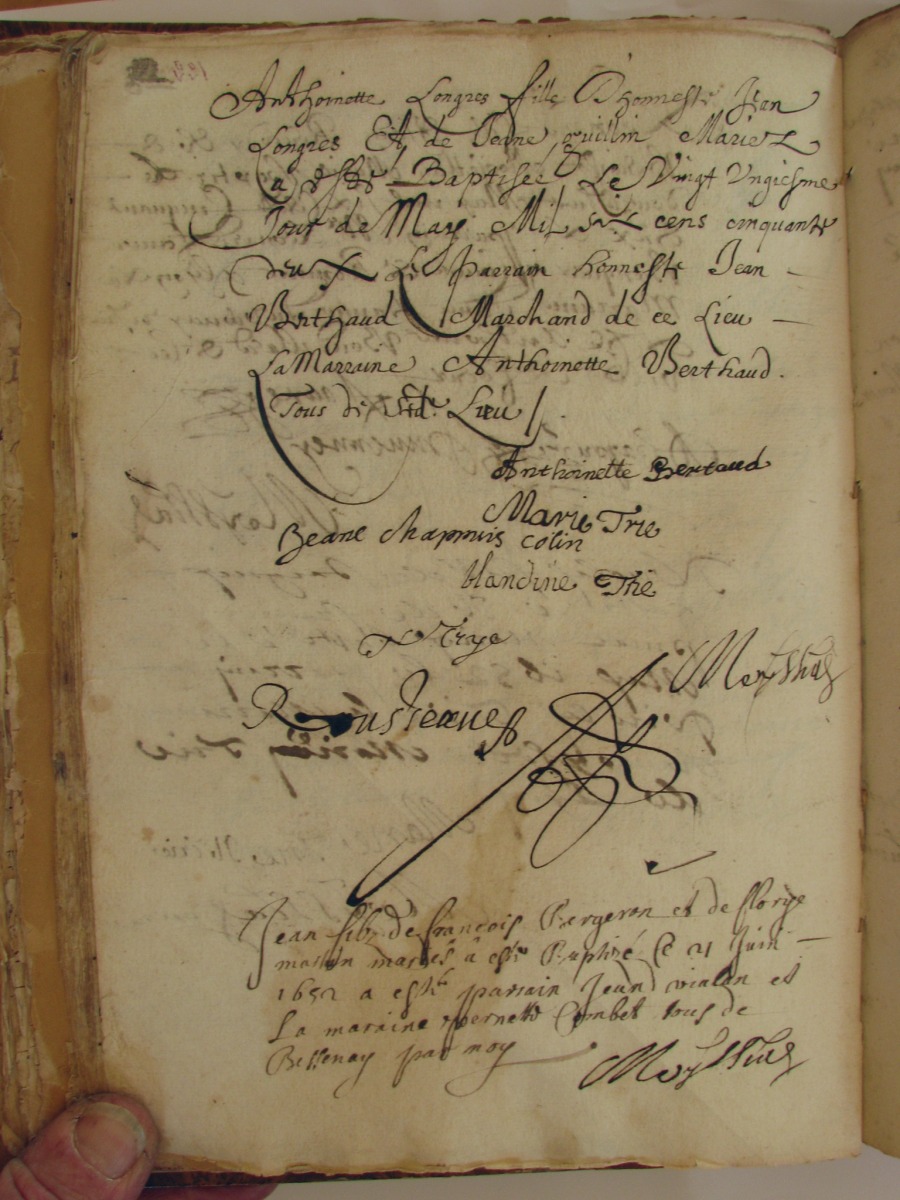 Anthoinette Longres fille D'honneste Jean
Longres Et de Jeane guillin Mariez
a esté Baptisée Le Vingt Ungiesme
Jour de May Mil six cens cinquante
deux Le parrain honneste Jean
Berthaud Marchand de ce Lieu
La Marraine Anthoinette Berthaud.
Tous de Lieu
Anthoinette Bertaud
Marie Trie
Jeane Chapmis colin
blandine Trie
Trye
Jean filz de françois Bergeron et de florye
mariés a esté Baptizé Ce 21 Juin
1652 a esté parrain Jean vialon et
La maraine pernette Combet tous de
Bessenay par moy